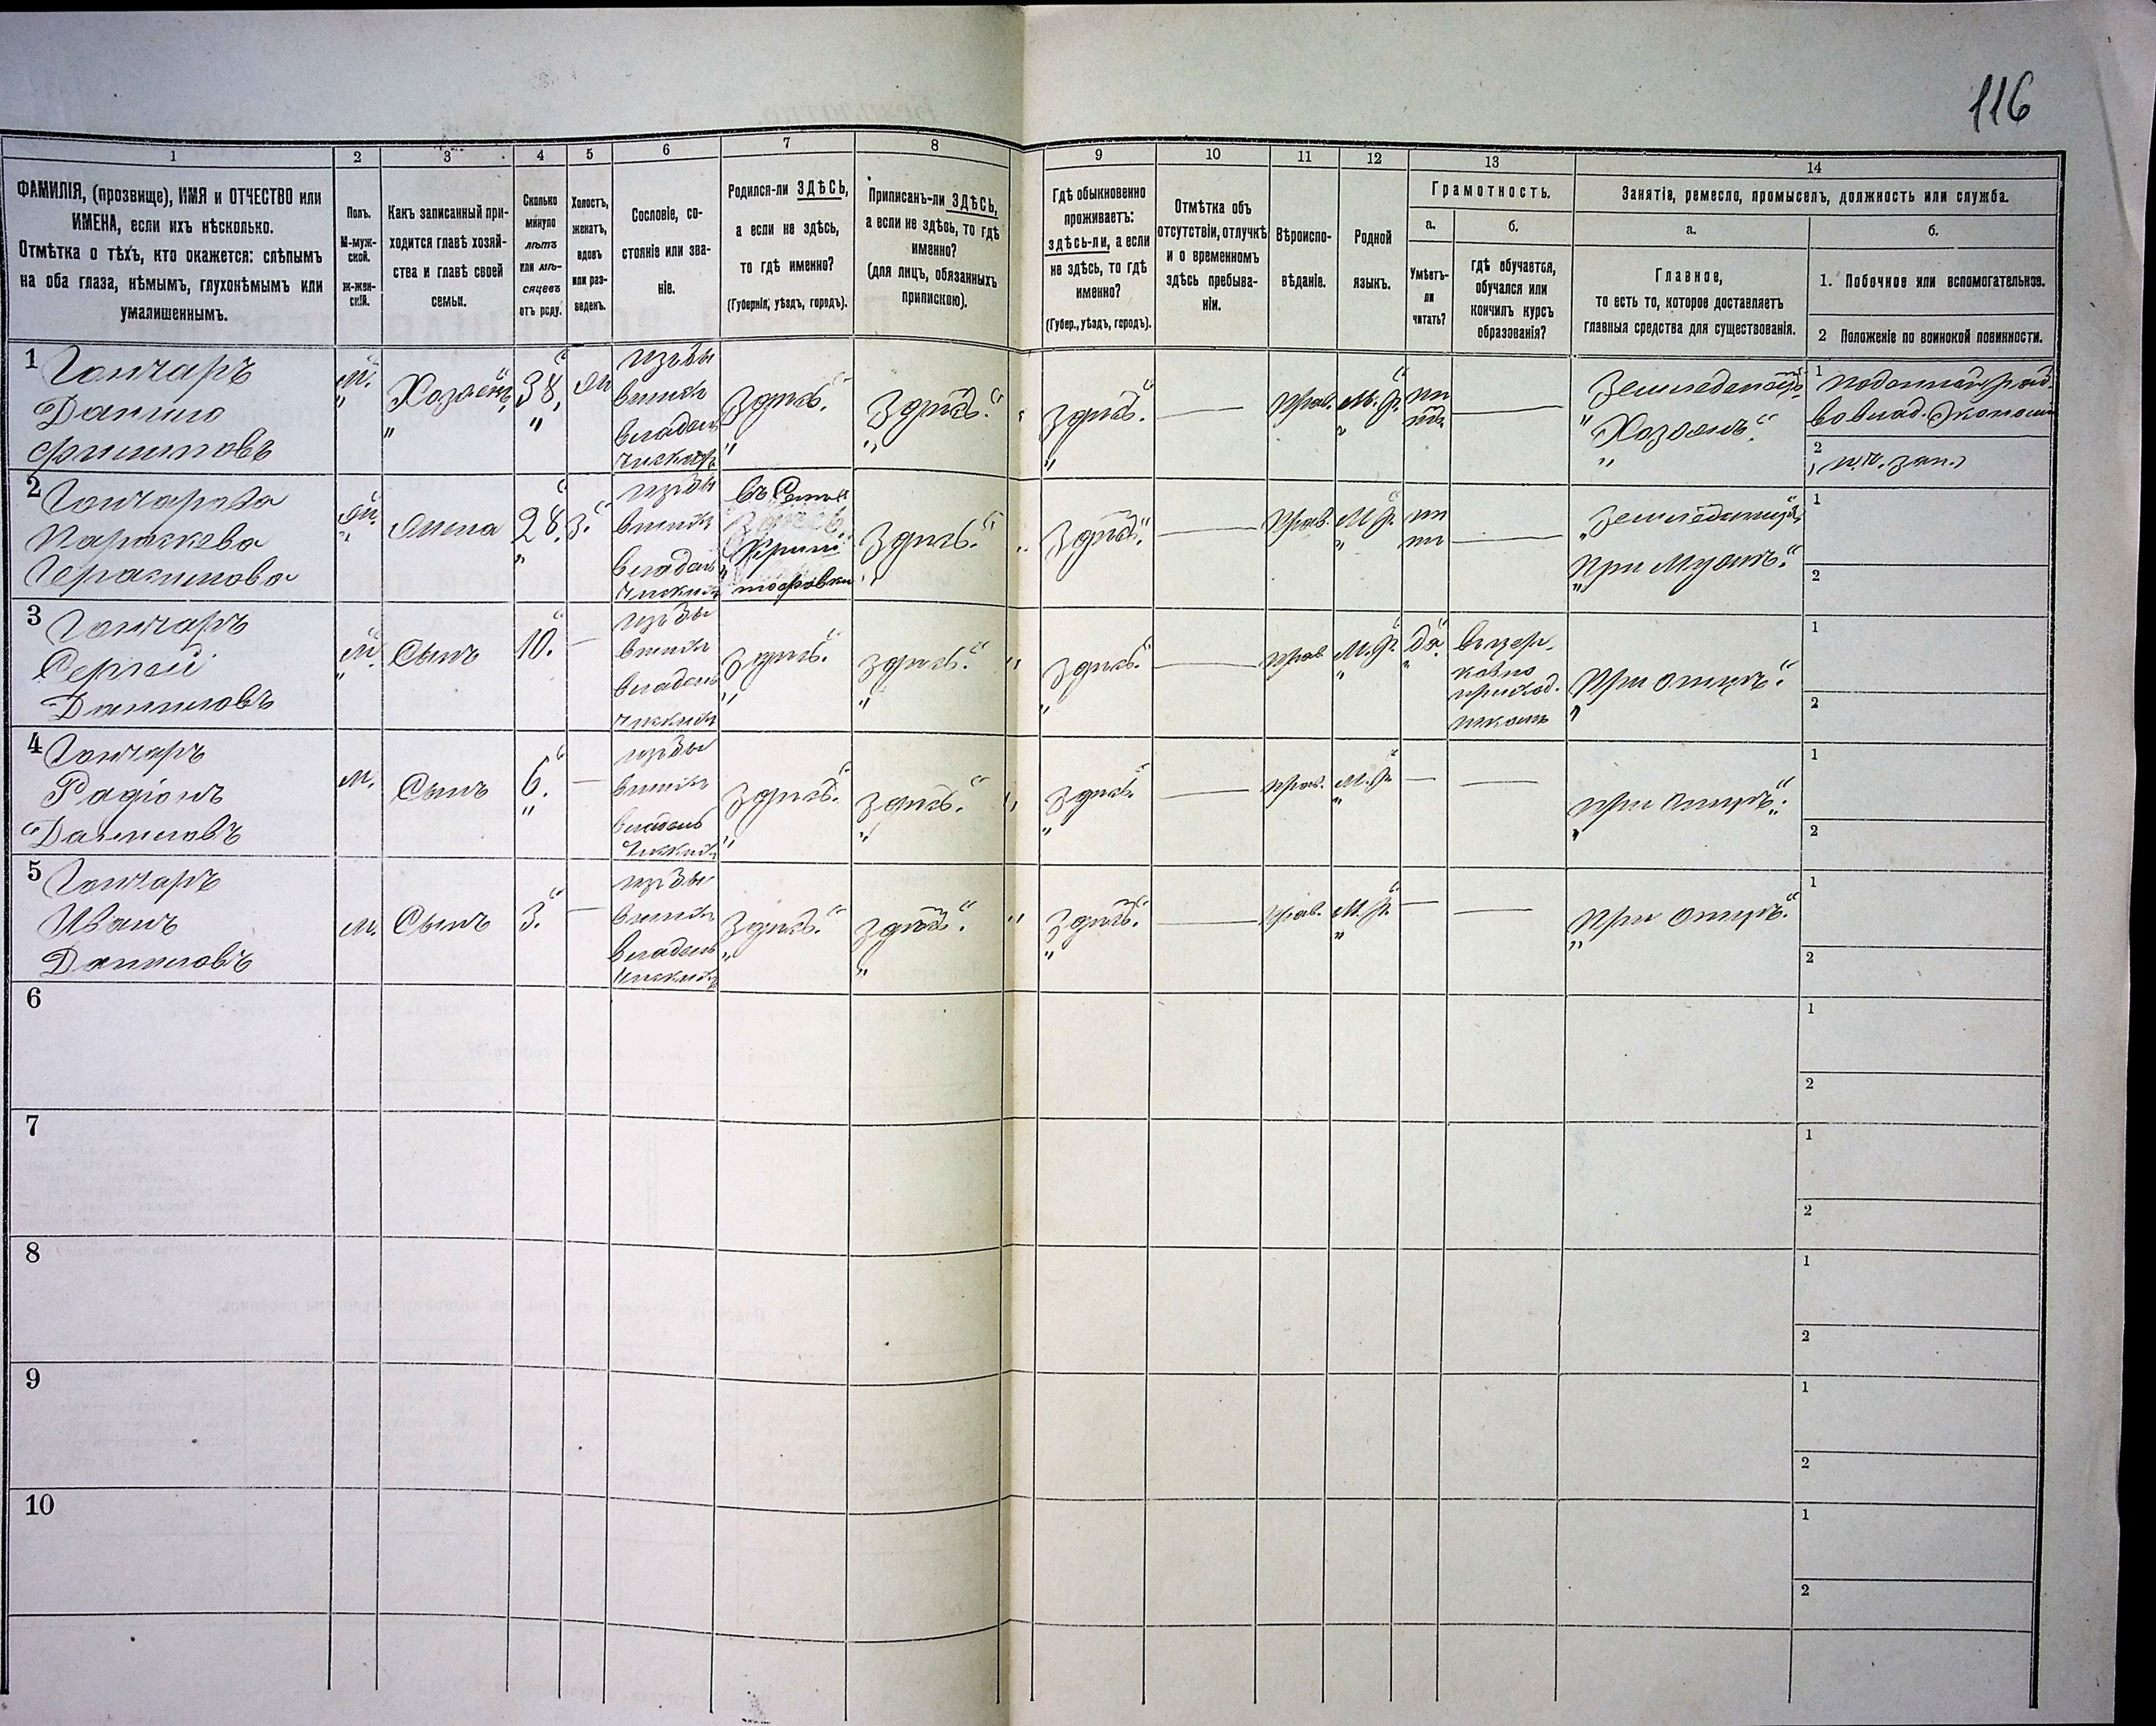 116
1
2
3
4
5
6
7
8
9
10
11
12
13
14
ФАМИЛІЯ, (прозвище), ИМЯ и ОТЧЕСТВО или
ИМЕНА, если ихъ нѣсколько.
Отмѣтка о тѣхъ, кто окажется: слѣпымъ
на оба глаза, нѣмымъ, глухонѣмымъ или
умалишеннымъ.
Полъ.
М-муж-
ской.
Ж-жен-
скій.
Какъ записанный при-
ходится главѣ хозяй-
ства и главѣ своей
семьи.
Сколько
минуло
лѣтъ
или мѣ-
сяцевъ
отъ роду.
Холостъ,
женатъ,
вдовъ
или раз-
веденъ.
Сословіе, со-
стояніе или зва-
ніе.
Родился-ли ЗДѢСЬ,
а если не здѣсь,
то гдѣ именно?
(Губернія, уѣздъ, городъ).
Приписанъ-ли ЗДѢСЬ,
а если не здѣсь, то гдѣ
именно?
(для лицъ, обязанныхъ
припискою).
Гдѣ обыкновенно
проживаетъ:
здѣсь-ли, а если
не здѣсь, то гдѣ
именно?
(Губер., уѣздъ, городъ).
Отмѣтка объ
отсутствіи, отлучкѣ
и о временномъ
здѣсь пребыва-
ніи.
Вѣроиспо-
вѣданіе.
Родной
языкъ.
Грамотность.
а.
Умѣетъ-
ли
читать?
б.
гдѣ обучается,
обучался или
кончилъ курсъ
образованія?
Занятія, ремесло, промыселъ, должность или служба.
а.
Главное,
то есть то, которое доставляетъ
главныя средства для существованія.
б.
1. Побочное или вспомогательное.
2 Положеніе по воинской повинности.
1 Гончаръ
Данило
Филиповъ
м.
Хозяинъ
38
изъ бы
вшихъ
владель
ческихъ
Здѣсь.
Здѣсь.
Здѣсь.
Прав.
М. Р.
нѣтъ
Земледелецъ
Хозяинъ
1
2
2 Гончарова
Параскева
Герасимова
жена
28.
З.
изъ бы
вшихъ
владель
ческихъ
въ Селѣ
Здѣсь.
Здѣсь.
Прав.
М. Р.
Земледелица
При Мужѣ.
1
2
3 Гончаръ
Сергѣй
Даниловъ
м.
Сынъ
10.
изъ бы
вшихъ
владель
ческихъ
Здѣсь.
Здѣсь.
Здѣсь.
Прав.
М. Р.
да
въ цер.
ковно
приход.
школѣ
При отцѣ.
1
2
4 Гончаръ
Радіонъ
Даниловъ
м.
Сынъ
6.
изъ бы
вшихъ
владель
ческихъ
Здѣсь.
Здѣсь.
Здѣсь.
Прав.
М. Р.
При Отцѣ.
1
2
5 Гончаръ
Иванъ
Даниловъ
м.
Сынъ
3.
изъ бы
вшихъ
владель
ческихъ
Здѣсь.
Здѣсь.
Здѣсь.
Прав.
М. Р.
При Отцѣ.
1
2
6
1
2
7
1
2
8
1
2
9
1
2
10
1
2